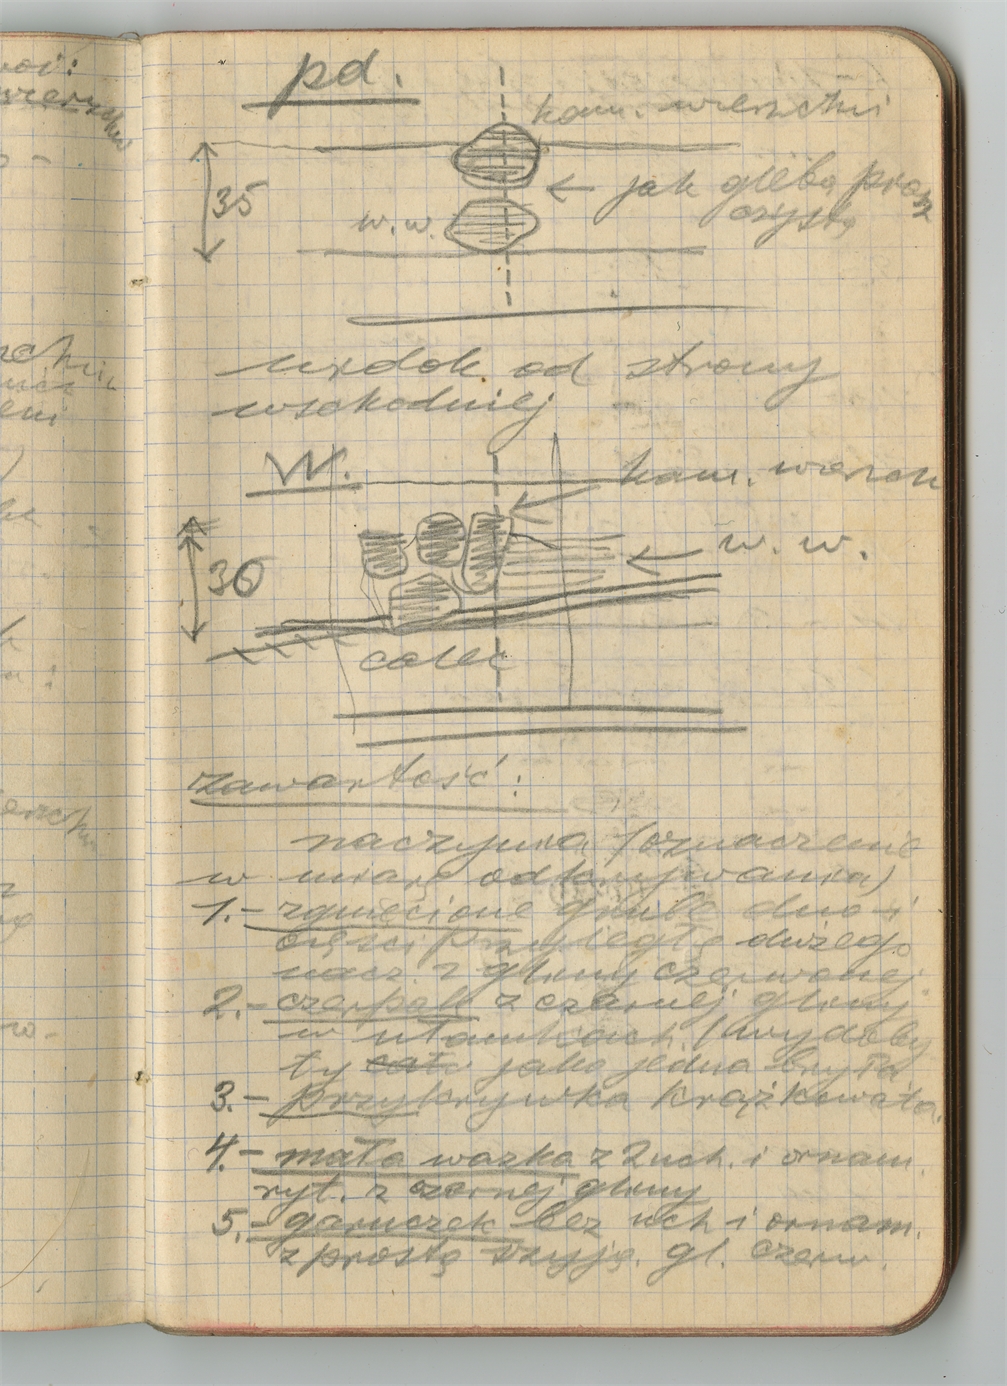 pd.
kam. wierzchni
35
← jak gleba prosz
czysta
w.w.
widok od strony
wschodniej
W.
kam. wierzch
w. w.
30
calec
zawartość:
naczynia (oznaczenie
w miarę odkrywania)
1.- zgniecione grube dno i
części przyległe dużego
nacz. z gliny czerwonej
2.- czerpak z czarnej gliny
w ułamkach (wydoby
ty jako jedna bryła
3.- przykrywka krążkowata.
4.- mała wazka z 2 uch. i ornam.
ryt. z czarnej gliny
5.- garnczek bez uch i ornam.
z prostą szyją. gl. czerw.